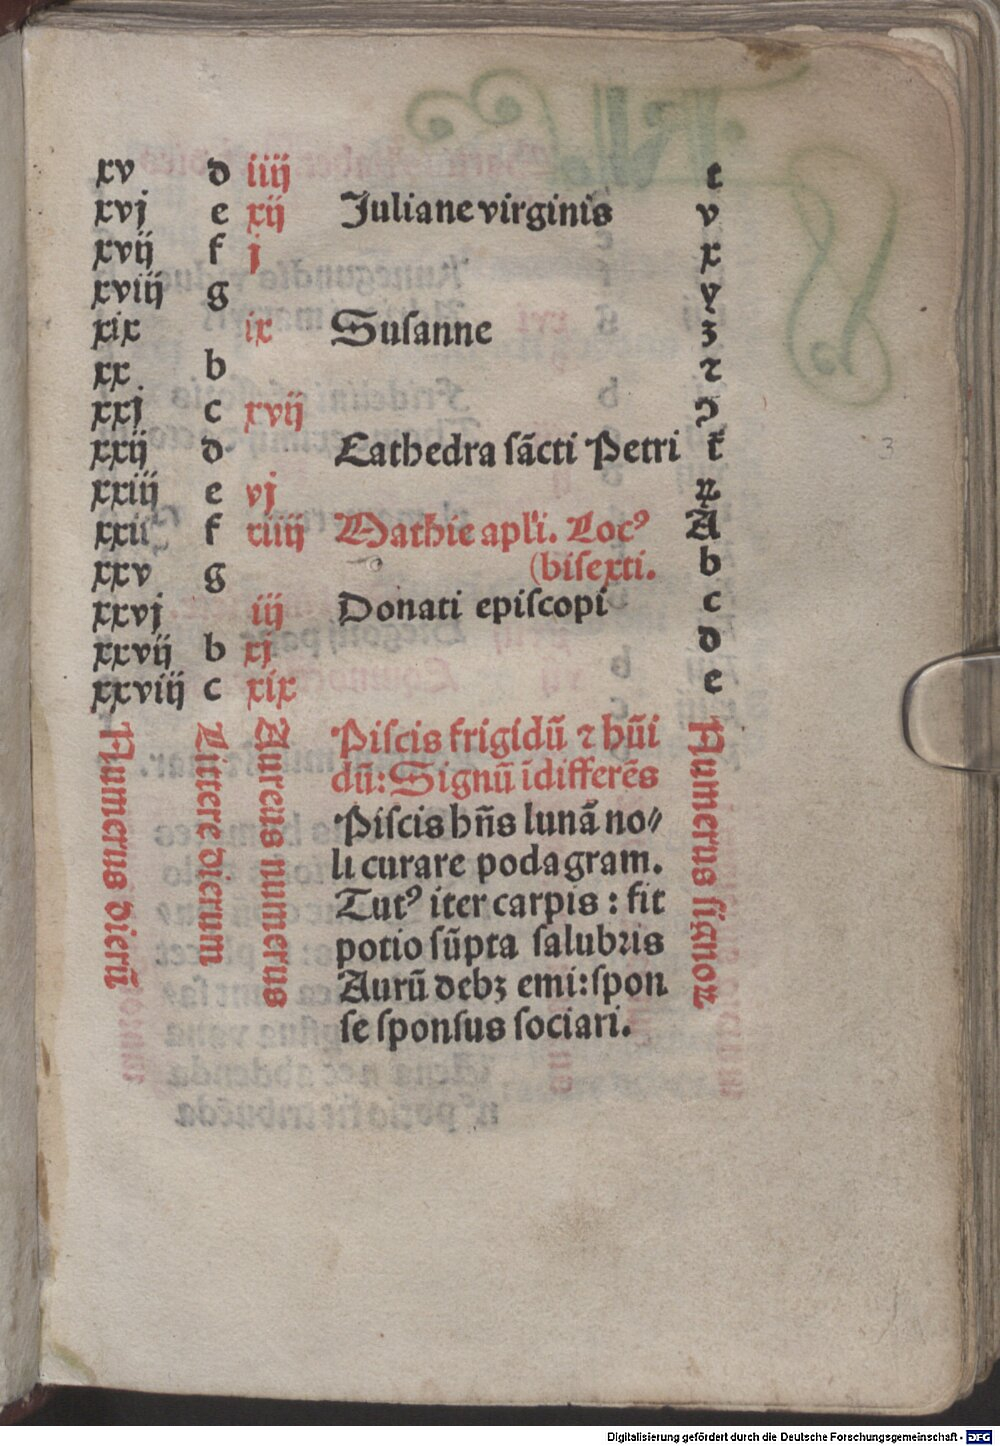 xv d iiij t
xvj e xij Juliane virginis v
xvij f j x
xviij g y
xix ix Suſanne z
xx b ꝛ
xxj c xvij ↄ
xxij d Cathedra ſācti Petri
xxiij e vj
xxii f xiiij Mathie apl'i. Locꝰ A
(biſexti.
xxv g b
xxvj iij Donati epiſcopi c
xxvij b xj d
xxviij c xix e
Numerus dierū
Littere dierum
Aureus numerus
Piſcis frigidū ⁊ hūi
dū: Signū īdifferēs
Piſcis hn̄s lunā no⸗
li curare podagram.
Tutꝰ iter carpis : fit
potio ſūpta ſalubꝛis
Aurū debꝫ emi: ſpon
ſe ſponſus ſociari.
Numerus ſignoꝝ
3
Digitalisierung gefördert durch die Deutsche Forschungsgemeinschaft - DFG